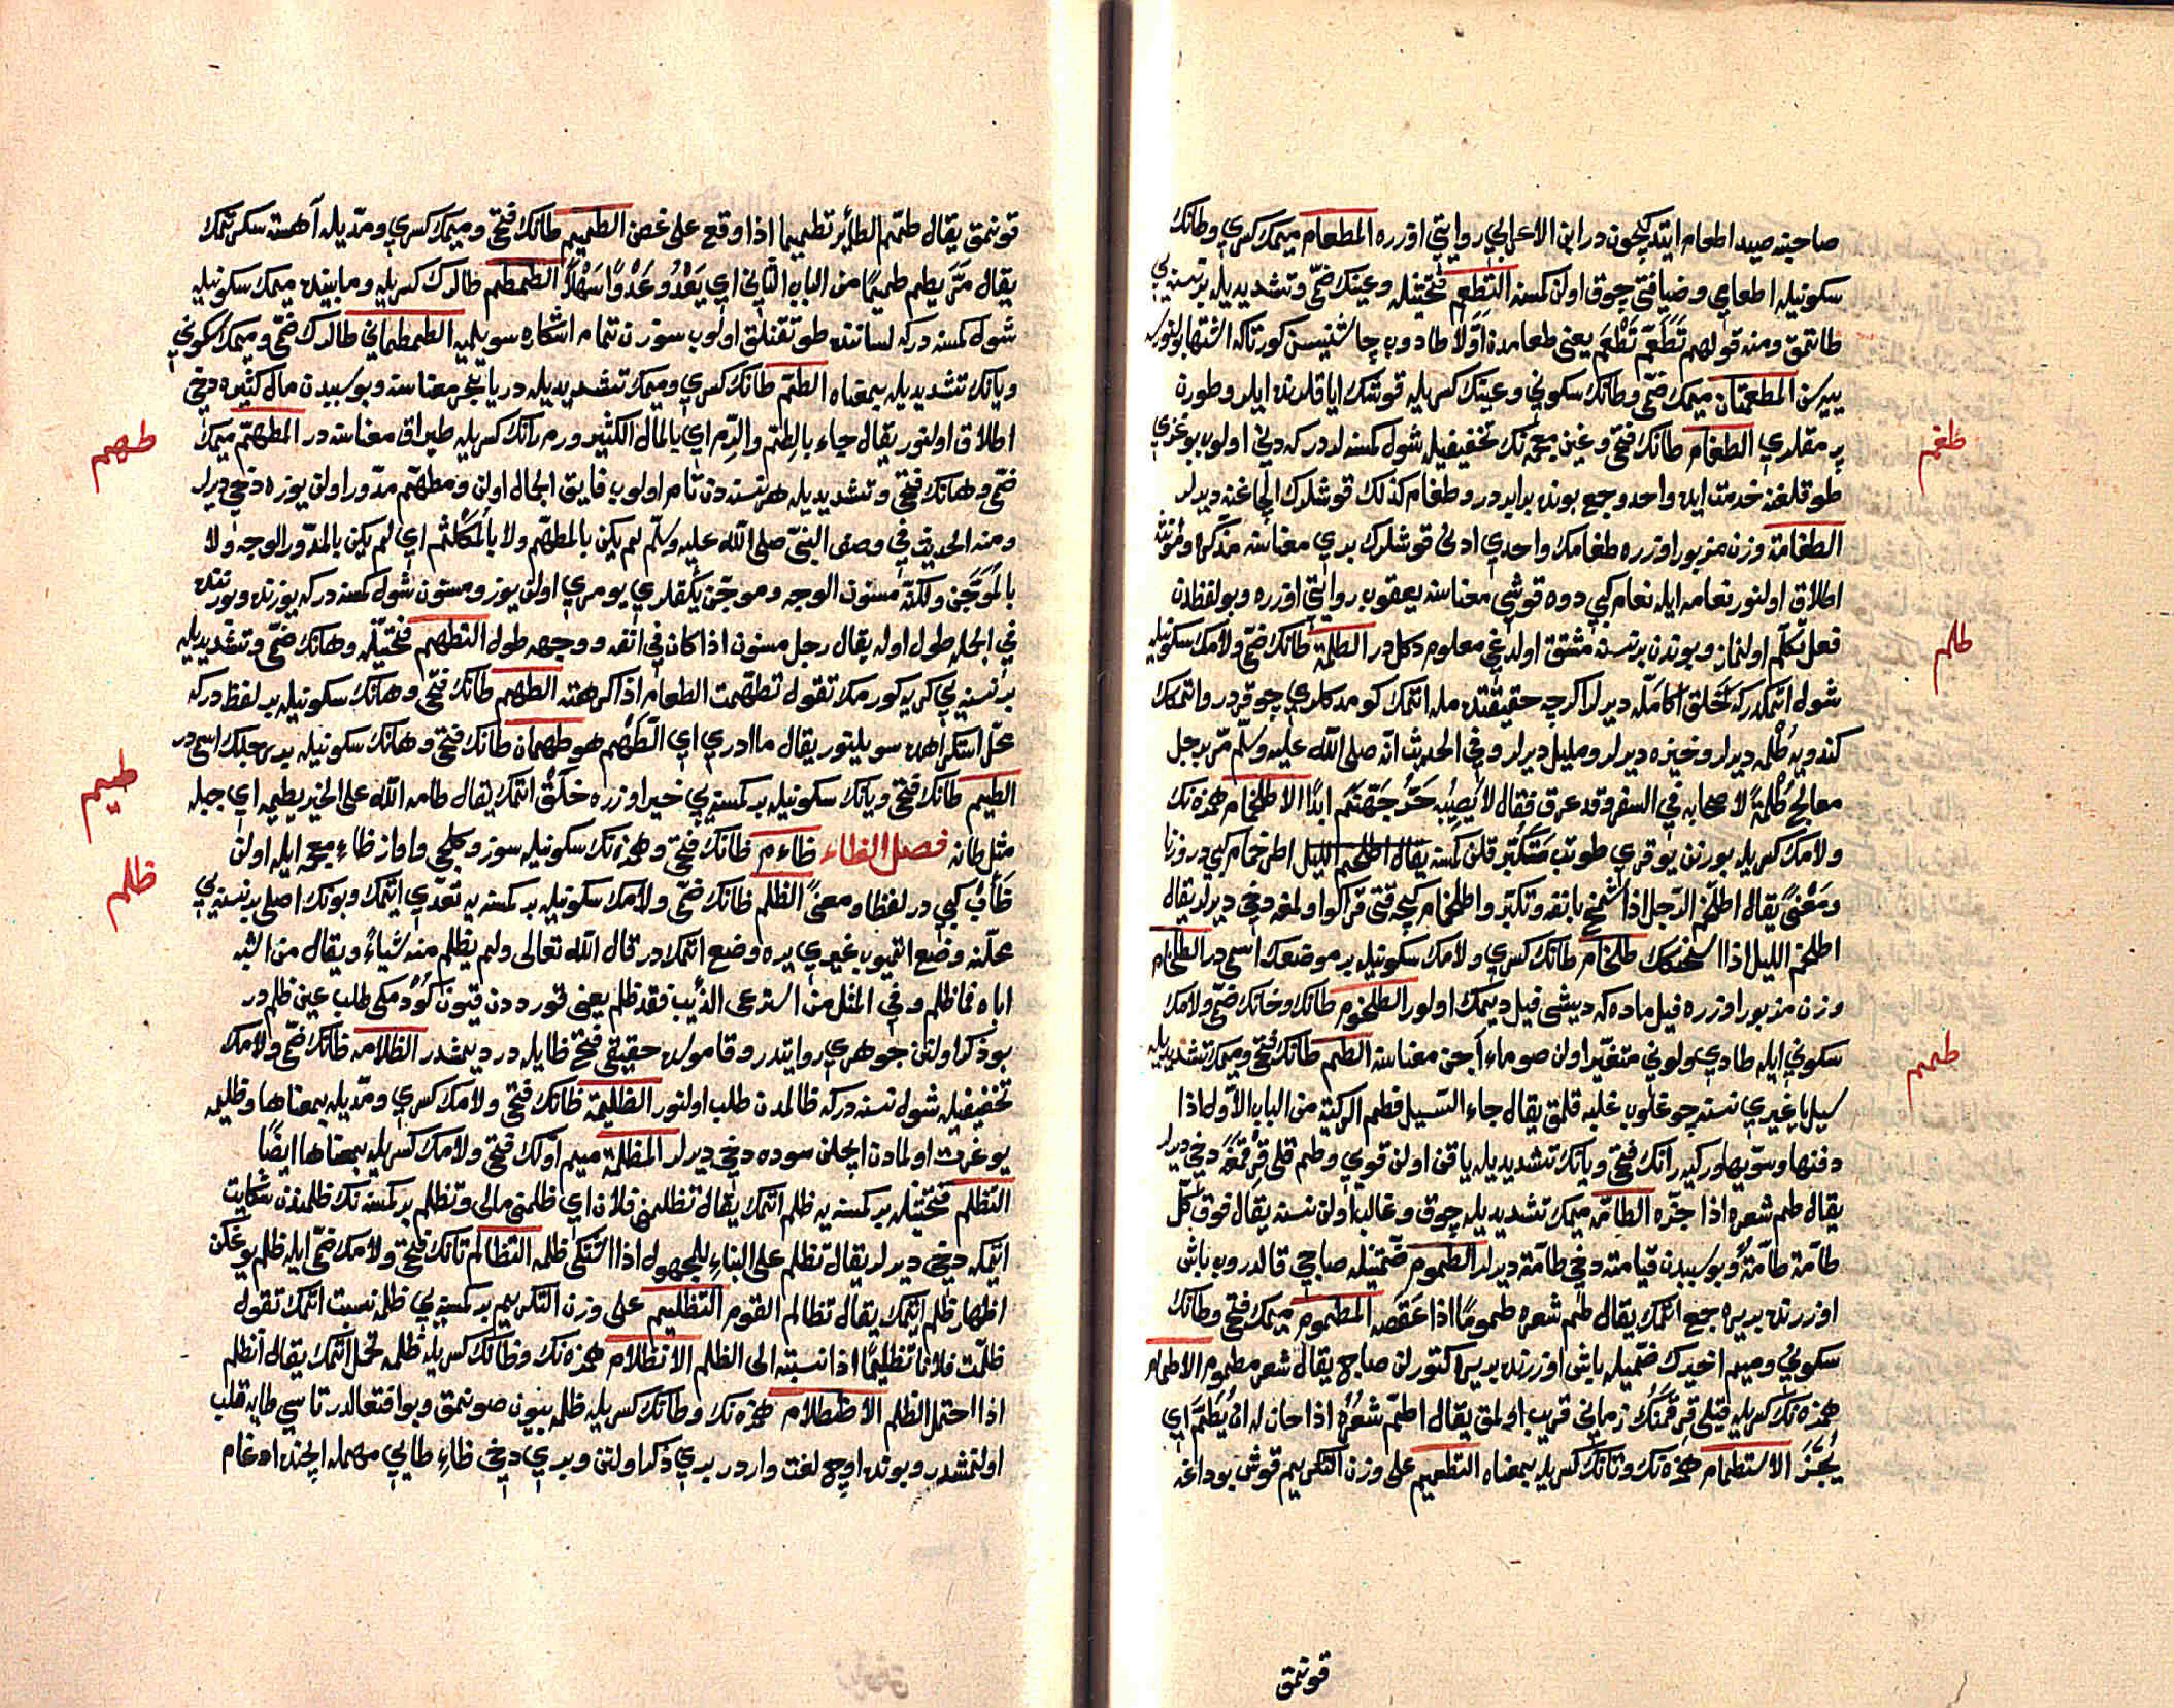 صاحبنه صيد اطعام ايتديكيچون در ابن الاعرابي روايتي اوزره المطعام ميمك كسري وطانك
سكونيله اطعامي وضيافتي چوق اولن كمسنه التطعم فتحتينله وعينك ضمّي وتشديديله بر نسنه يي
طاتمق ومنه قولهم تَطَعَّمْ تَطْعَمْ يعني طعامدن اوّلا طادوب چاشنيسن كور تاكه اشتها بولنور
ييرسن المطعمتان ميمك ضمّي وطانك سكوني وعينك كسريله قوشك اياقلرنده ايلرو طورن
پرمقلري الطغام طانك فتحي وغين معجمه نك تخفيفيله شول كمسنه لردر كه دني اولوب بوغزي
طوقلغنه خدمت ايده واحد وجمع بونده برابردر وطغام كذلك قوشلرك الچاغنه ديرلر
الطغامة وزن مزبور اوزره طغامك واحدي ادنى قوشلرك بري معناسنه مذكره ومؤنثه
اطلاق اولنور نعامه ايله نعام كبي دوه قوشي معناسنه يعقوب روايتي اوزره وبو لفظدن
فعل تكلّم اولنماز وبوندن بر نسنه مشتق اولدغي معلوم دكل در الطلمة طانك ضمّي ولامك سكونيله
شول اتمكدر كه خلق اكا مَلّه ديرلر اكرچه حقيقتده مله اتمك كومدكلري چوقردر واتمكك
كندويه طُلمه ديرلر وخبزه ديرلر ومليل ديرلر وفي الحديث انّه صلى اللّه عليه وسلّم مرّ برجل
معالج طُلْمَةً لاصحابه في السفر وقد عرق فقال لا يُصِيبُه حَرُّ جَهَنَّم ابدًا الاطلخمام همزه نك
ولامك كسريله بورنن يوقري طوتب متكبّر قلن كمسنه يقال اطلخم الليل اطرخمام كبي در وزنا
ومَعْنىً يقال اطلخمّ الرّجل اذا شمخ بانفه وتكبّر واطلخمام كيجه قتى قراكو اولمغه دخي ديرلر يقال
اطلخمّ الليل اذا استحنكك طلخام طانك كسري ولامك سكونيله بر موضعك اسمي در الطلخام
وزن مزبور اوزره فيل ماده كه ديشى فيل ديمك اولور الطلخوم طانك وخانك ضمّي ولامك
سكوني ايله طادي ولوني متغيّر اولن صو ماء آجن معناسنه الطم طانك فتحي وميمك تشديديله
سيل يا غيري نسنه چوغلوب غلبه قلمق يقال جاء السّيل فطم الركيّة من الباب الاوّل اذا
دفنها وسوّيها وركيه رانك فتحي ويانك تشديديله ياقن اولن قويي وطم قلي قِرقمَغه دخي ديرلر
يقال طم شعره اذا جزّه الطامّة ميمك تشديديله چوق وغالب اولن نسنه يقال فوق كلّ
طامّة طامّةٌ وبو سبيدن قيامته دخي طامّة ديرلر الطموم ضمّتينله صاچي قالدروب باشى
اوزرنده بر يره جمع اتمك يقال طم شعره طمومًا اذا عَقَصَه المطموم ميمك فتحي وطانك
سكوني وميم اخيرك ضمّيله باشى اوزرنده بر يره كتورلن صاچ يقال شعر مطموم الاطمام
همزه نك كسريله قيلي قِرقمَنُك زماني قريب اولمق يقال اطمّ شعْرُه اذا حان له ان يُطَمّ اي
يُجَزّ الاستطمام همزه نك وتانك كسريله بمعناه التطميم على وزن التكريم قوش بوداغه
قونمق
طغم
طلم
طمم
قونمق يقال طمّم الطائر تطميما اذا وقع على غصن الطميم طانك فتحي وميمك كسري ومدّيله آهسته سكرتمك
يقال مَرّ يطم طميمًا من الباب الثاني اي يَعْدُو عَدْوًا سَهْلاً الطمطم طالرك كسريله ومابينده ميمك سكونيله
شول كمسنه در كه لساننده طوتقنلق اولوب سوزن تمام اشكاره سويلميه الطمطماني طالرك ضمّي وميمك سكوني
ويانك تشديديله بمعناه الطمّ طانك كسري وميمك تشديديله دريا بحر معناسنه وبو سبيدن مال كثيره دخي
اطلاق اولنور يقال جاء بالطِّم والرِّم اي بالمال الكثير ورم رانك كسريله طپراق معناسنه در المطهّم ميمك
ضمّي وهانك فتحي وتشديديله هر نسنه دن تام اولوب فايق الجمال اولن ومطهّم مدّور اولن يوزه دخي ديرلر
ومنه الحديث في وصف النبيّ صلى اللّه عليه وسلّم لم يكن بالمطهّم ولا بالمكلثم اي لم يكن بالمدّور الوجه ولا
بالموَجَّن ولكنّه مسنون الوجه وموجّن يكقلري يومري اولن يوز ومسنون شول كمسنه در كه يوزنده وبورننده
في الجمله طول اوله يقال رجل مسنون اذا كان في انفه ووجهه طول التطهم فتحتينله وهانك ضمّي وتشديديله
بر نسنه يي كريه كورمك تقول تطهّمت الطعام اذا كرهته الطهم طانك فتحي وهانك سكونيله بر لفظ در كه
محلّ استكراهده سويلنور يقال ما ادري اي الطَهْم هو طهمان طانك فتحي وهانك سكونيله بر رجلك اسمي در
الطيم طانك فتحي ويانك سكونيله بر كمسنه يي خير اوزره خلق اتمك يقال طامه اللّه على الخير يطيمه اي جبله
مثل طانه فصل الظاء ظاءم ظانك فتحي وهمزه نك سكونيله سوز وكلمجي واواز ظاءِ معجمه ايله اولن
ظَأْب كبي در لفظا ومعنىً الظلم ظانك ضمّي ولامك سكونيله بر كمسنه يه تعدّي اتمك وبونك اصلي بر نسنه يي
محلّنه وضع اتميوب غيري يره وضع اتمكدر قال اللّه تعالى ولم يظلم منه شياءً ويقال من اشبه
اباه فما ظلم وفي المثل من استرعى الذيب فقد ظلم يعني قورددن قيون كودمكى طلب عين ظلم در
بو ذكر اولنن جوهري روايتدر وقاموسده حقيقي فتح ظا يله در ديمشدر الظلامه ظانك ضمّي ولامك
تخفيفيله شول نسنه در كه ظالمدن طلب اولنور الظليمة ظانك فتحي ولامك كسري ومدّيله بمعناها وظليمه
يوغرت اولمادن ايچلن سوده دخي ديرلر المظلمة ميم اولك فتحي ولامك كسريله بمعناها ايضًا
التظلم فتحتينله بر كمسنه يه ظلم اتمك يقال تظلمني فلان اي ظلمني مالى وتظلم بر كمسنه نك ظلمندن شكايت
ايتمكه دخي ديرلر يقال تظلم على البناء للمجهول اذا اشتكى ظلمه التظالم تانك فتحي ولامك ضمّي ايله ظلم يوغكن
اظهار ظلم ايتمك يقال تظالم القوم التظليم على وزن التكريم بر كمسنه يي ظلمه نسبت اتمك تقول
ظلّمت فلانا تظليمًا اذا نسبته الى الظلم الانظلام همزه نك وظانك كسريله ظلمه تحمّل اتمك يقال انظلم
اذا احتمل الظلم الاظطلام همزه نك وطانك كسريله ظلمه بيون صونمق وبو افتعالدر تاسي طايه قلب
اولنمشدر وبونده اوچ لغت واردر بري ذكر اولنن وبري دخي ظاءِ طايي مهمله ايچنده ادغام
طهم
طيم
ظلم